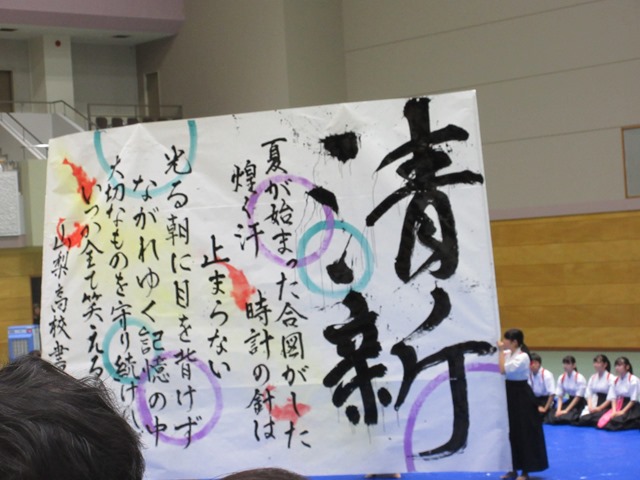 清新
夏が始まった合図がした
煌く汗 時計の針は
止まらない
光る朝に目を背けず
ながれゆく記憶の中
大切なものを守り続け
いつか全て笑える
山梨高校書